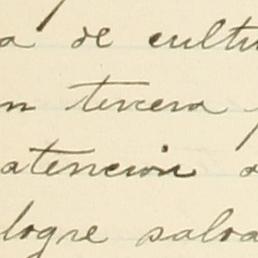 a de cultu
n tercera
atención a
logre salva